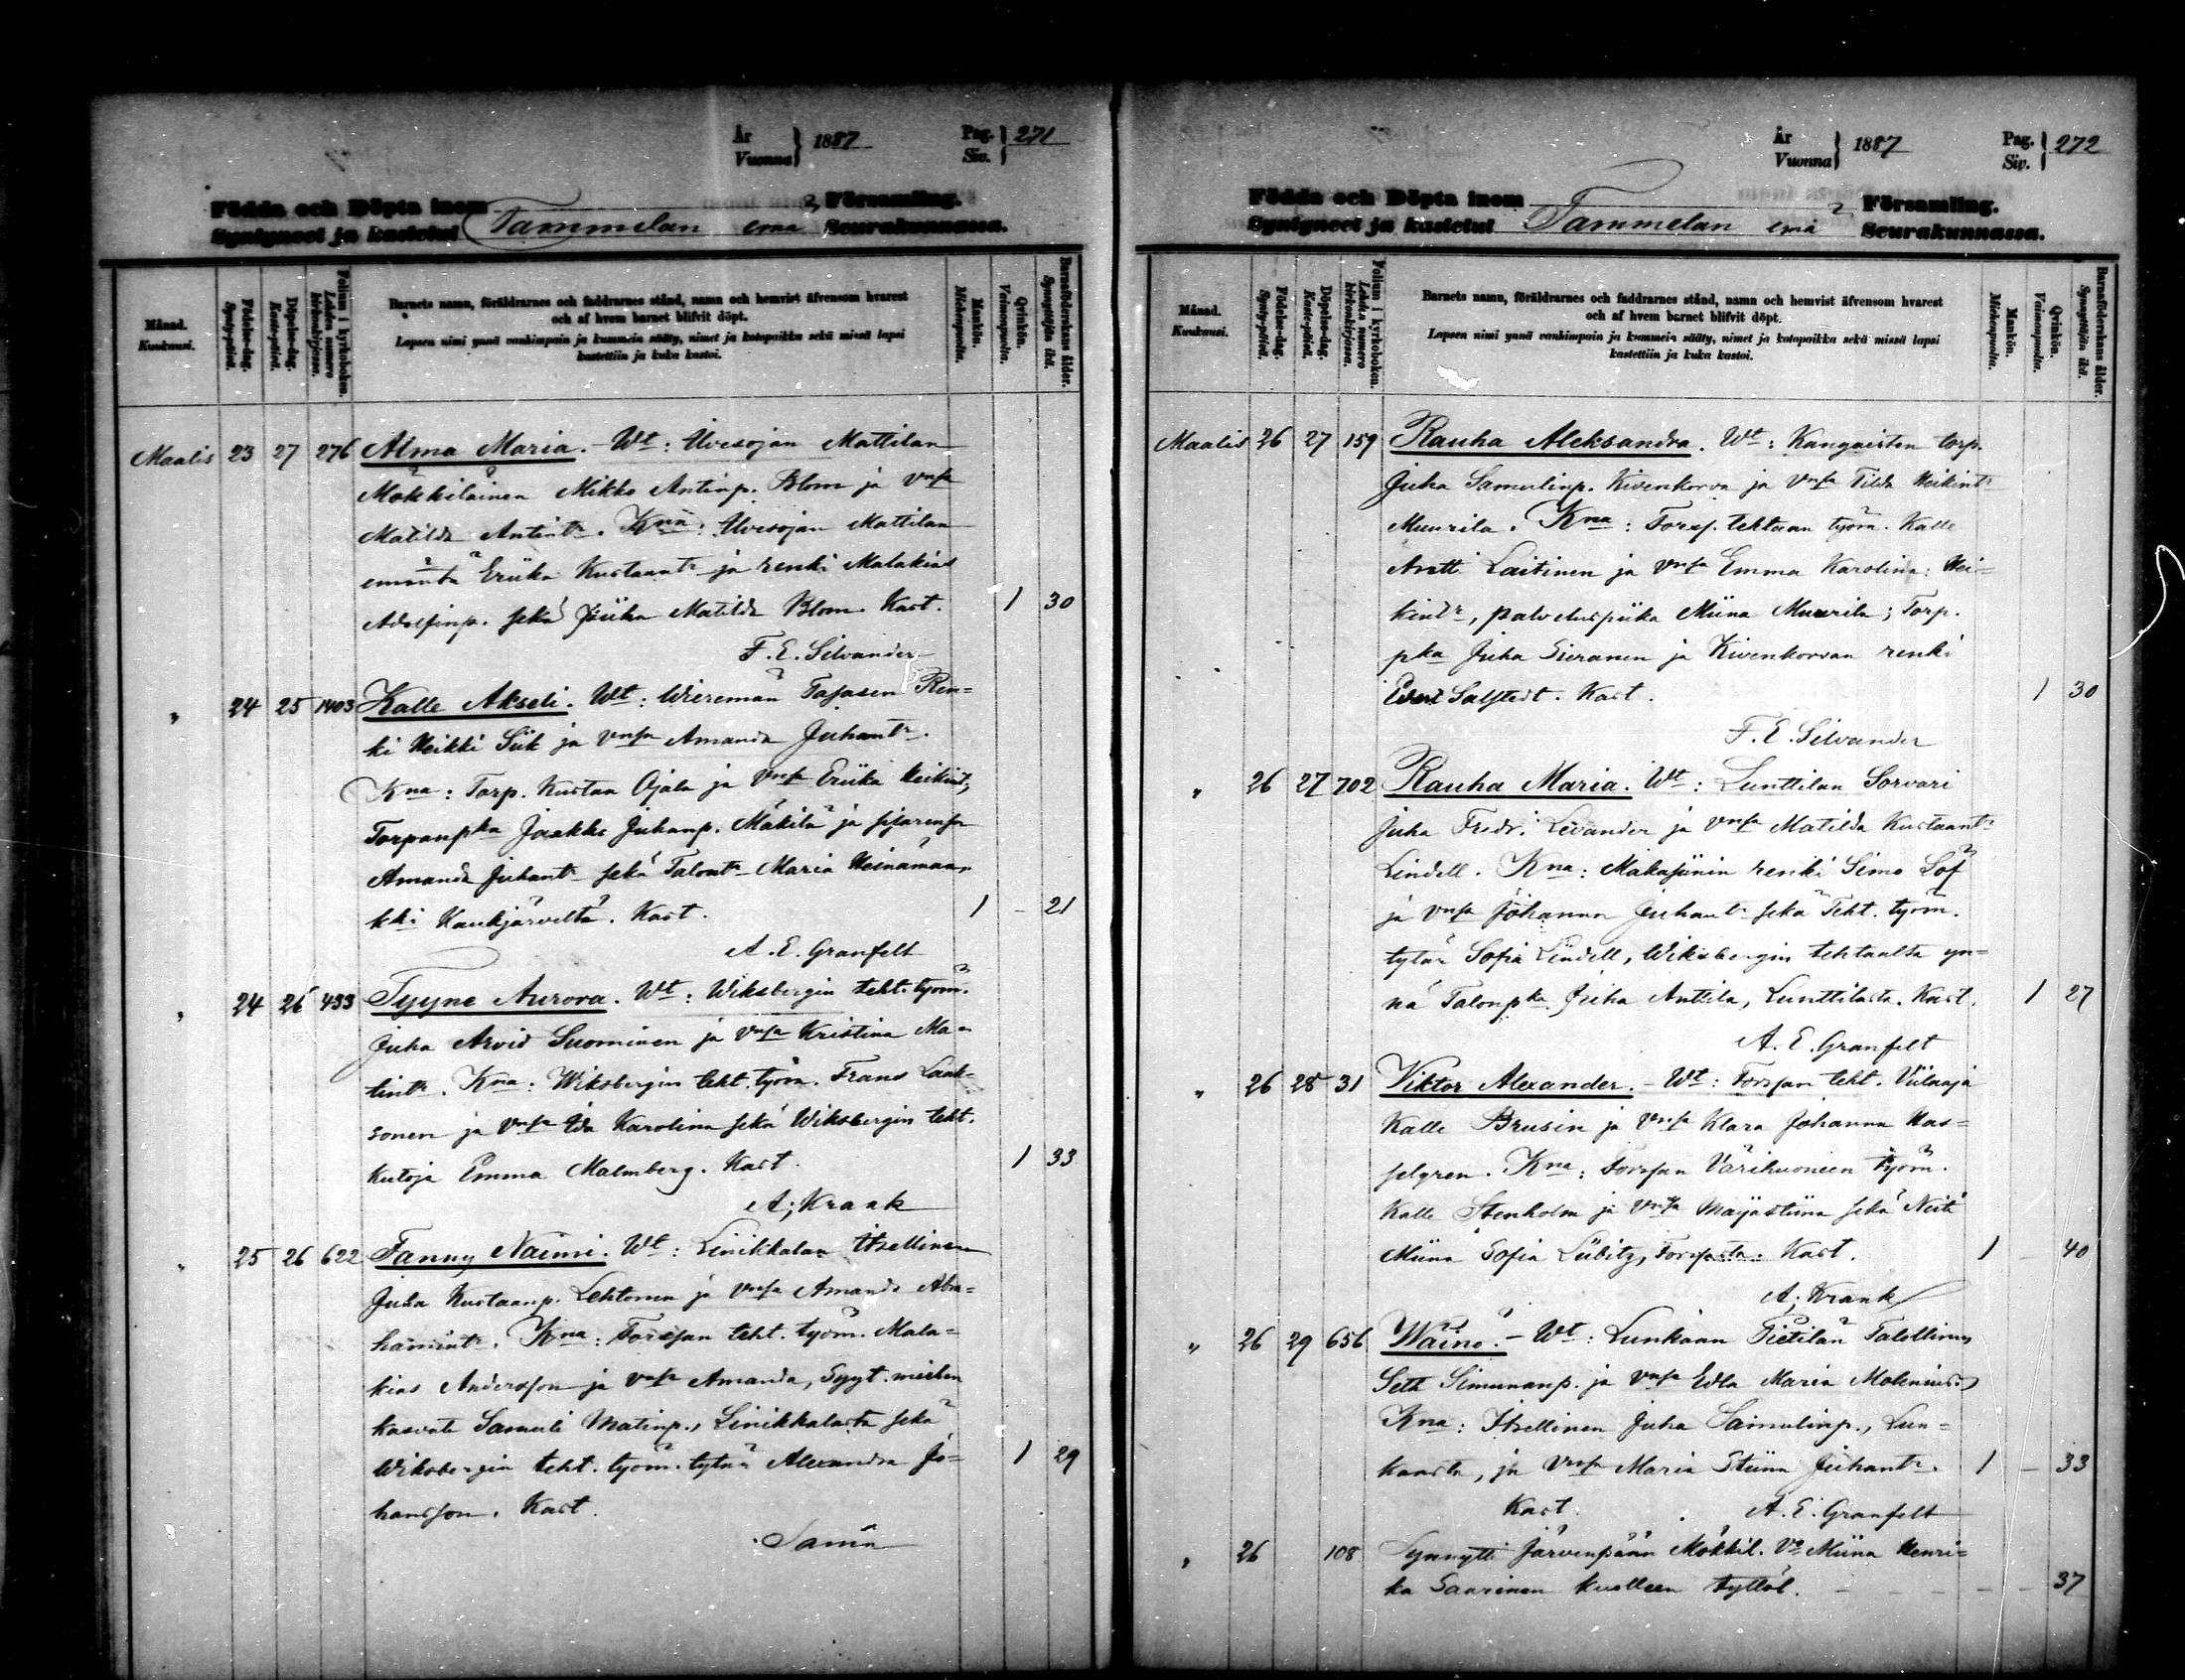 År
Vuonna } 1887 Pag.
Siv. } 271
Födda och Döpta inom
Syntyneet ja kastetut Tammelan emä Församling.
Seurakunnassa.
Månad.
Kuukausi.
Födelse-dag.
Synty-päivä.
Döpelse-dag.
Kaste-päivä.
Folium i kyrkoboken.
Lehden numero kirkonkirjassa.
Barnets namn, föräldrarnes och faddrarnes stånd, namn och hemvist äfvensom hvarest
och af hvem barnet blifvit döpt.
Lapsen nimi ynnä vanhimpain ja kummein sääty, nimet ja kotopaikka sekä missä lapsi
kastettiin ja kuka kastoi.
Mankön.
Miehenpuolta.
Qvinkön.
Vaimonpuolta.
Barnaföderskans ålder.
Synnyttäjän ikä.
Maalis 23 27 276 Alma Maria. - Wt: Ilvesojan Mattilan
Mökkiläinen Mikko Antinp. Blom ja vmsa
Matilda Antintr. Kna: Ilvesojan Mattilan
emäntä Eriika Kustaantr ja renki Malakias
Adolfinp. sekä piika Matilda Blom. Kast. 1 30
F. E. Silvander
" 24 25 1403 Kalle Akseli. Wt: Wieremän Tapasen Ren=
ki Heikki Siik ja vmsa Amanda Juhantr.
Kna: Torp. Kustaa Ojala ja vmsa Eriika Heikint,
Torpanpka Jaakko Juhanp. Mäkilä ja sisarensa
Amanda Juhantr sekä Talontr Maria Heinämaa,
kki Kaukjärveltä. Kast. 1 - 21
A. E. Granfelt
" 24 26 433 Tyyne Aurora. Wt: Wiksbergin teht. työm.
Juha Arvid Suominen ja vmsa Kristina Ma=
tintr. Kna: Wiksbergin teht. työm. Frans Laak=
sonen ja vmsa Ida Karolina sekä Wiksbergin teht.
kutoja Emma Malmberg. Kast. 1 33
A; Krank
" 25 26 622 Fanny Naimi. Wt: Linikkalan Itsellinen
Juha Kustaanp. Lehtonen ja vmsa Amanda Abra=
hamintr. Kna: Forssan teht. työm. Mala=
kias Andersson ja vmsa Amanda, Syyt. miehen
kasvate Samuli Matinp., Linikkalasta sekä
Wiksbergin teht. työm. tytär Alexandra Jo= 1 29
hansson. Kast.
Sama
År
Vuonna } 1887 Pag.
Siv. } 272
Födda och Döpta inom
Syntyneet ja kastetut Tammelan emä Församling.
Seurakunnassa.
Månad.
Kuukausi.
Födelse-dag.
Synty-päivä.
Döpelse-dag.
Kaste-päivä.
Folium i kyrkoboken.
Lehden numero kirkonkirjassa.
Barnets namn, föräldrarnes och faddrarnes stånd, namn och hemvist äfvensom hvarest
och af hvem barnet blifvit döpt.
Lapsen nimi ynnä vanhimpain ja kummein sääty, nimet ja kotopaikka sekä missä lapsi
kastettiin ja kuka kastoi.
Mankön.
Miehenpuolta.
Qvinkön.
Vaimonpuolta.
Barnaföderskans ålder.
Synnyttäjän ikä.
Maalis 26 27 159 Rauha Aleksandra. Wt: Kangaisten torp.
Juha Samulinp. Kivenkorva ja vmsa Tilda Heikintr
Muurila. Kna: Forss. tehtaan työm. Kalle
Antti Laitinen ja vmsa Emma Karolina Hei=
kintr, palveluspiika Miina Muurila; Torp.
pka Juha Sieranen ja Kivenkorvan renki
Evert Salstedt. Kast. 1 30
F. E. Silvander
" 26 27 702 Rauha Maria. Wt: Lunttilan Sorvari
Juha Fredr. Levander ja vmsa Matilda Kustaantr
Lindell. Kna: Makasiinin renki Simo Löf
ja vmsa Johanna Juhantr sekä Teht. työm.
tytär Sofia Lindell, Wiksbergin tehtaalta yn=
nä Talonpka Juha Anttila, Lunttilasta. Kast. 1 27
A. E. Granfelt
" 26 28 31 Viktor Alexander. - Wt: Forssan teht. Viilaaja
Kalle Brusin ja vmsa Klara Johanna Has=
selgren. Kna: Forssan Värihuoneen työm.
Kalle Stenholm ja vmsa Majastiina sekä Neiti
Miina Sofia Lübitz, Forssasta. Kast. 1 - 40
A; Krank
" 26 29 656 Wäinö. - Wt: Lunkaan Pietilän Talollinen
Seth Simunanp. ja vmsa Edla Maria Molenius.
Kna: Itsellinen Juha Samulinp., Lun=
kaasta, ja vmsa Maria Stiina Juhantr. 1 - 33
Kast. A. E. Granfelt
" 26 108 Synnytti Järvenpään Mökkil. Vo Miina Henri=
ka Saarinen kuolleen tyttöl. - - - - - 37